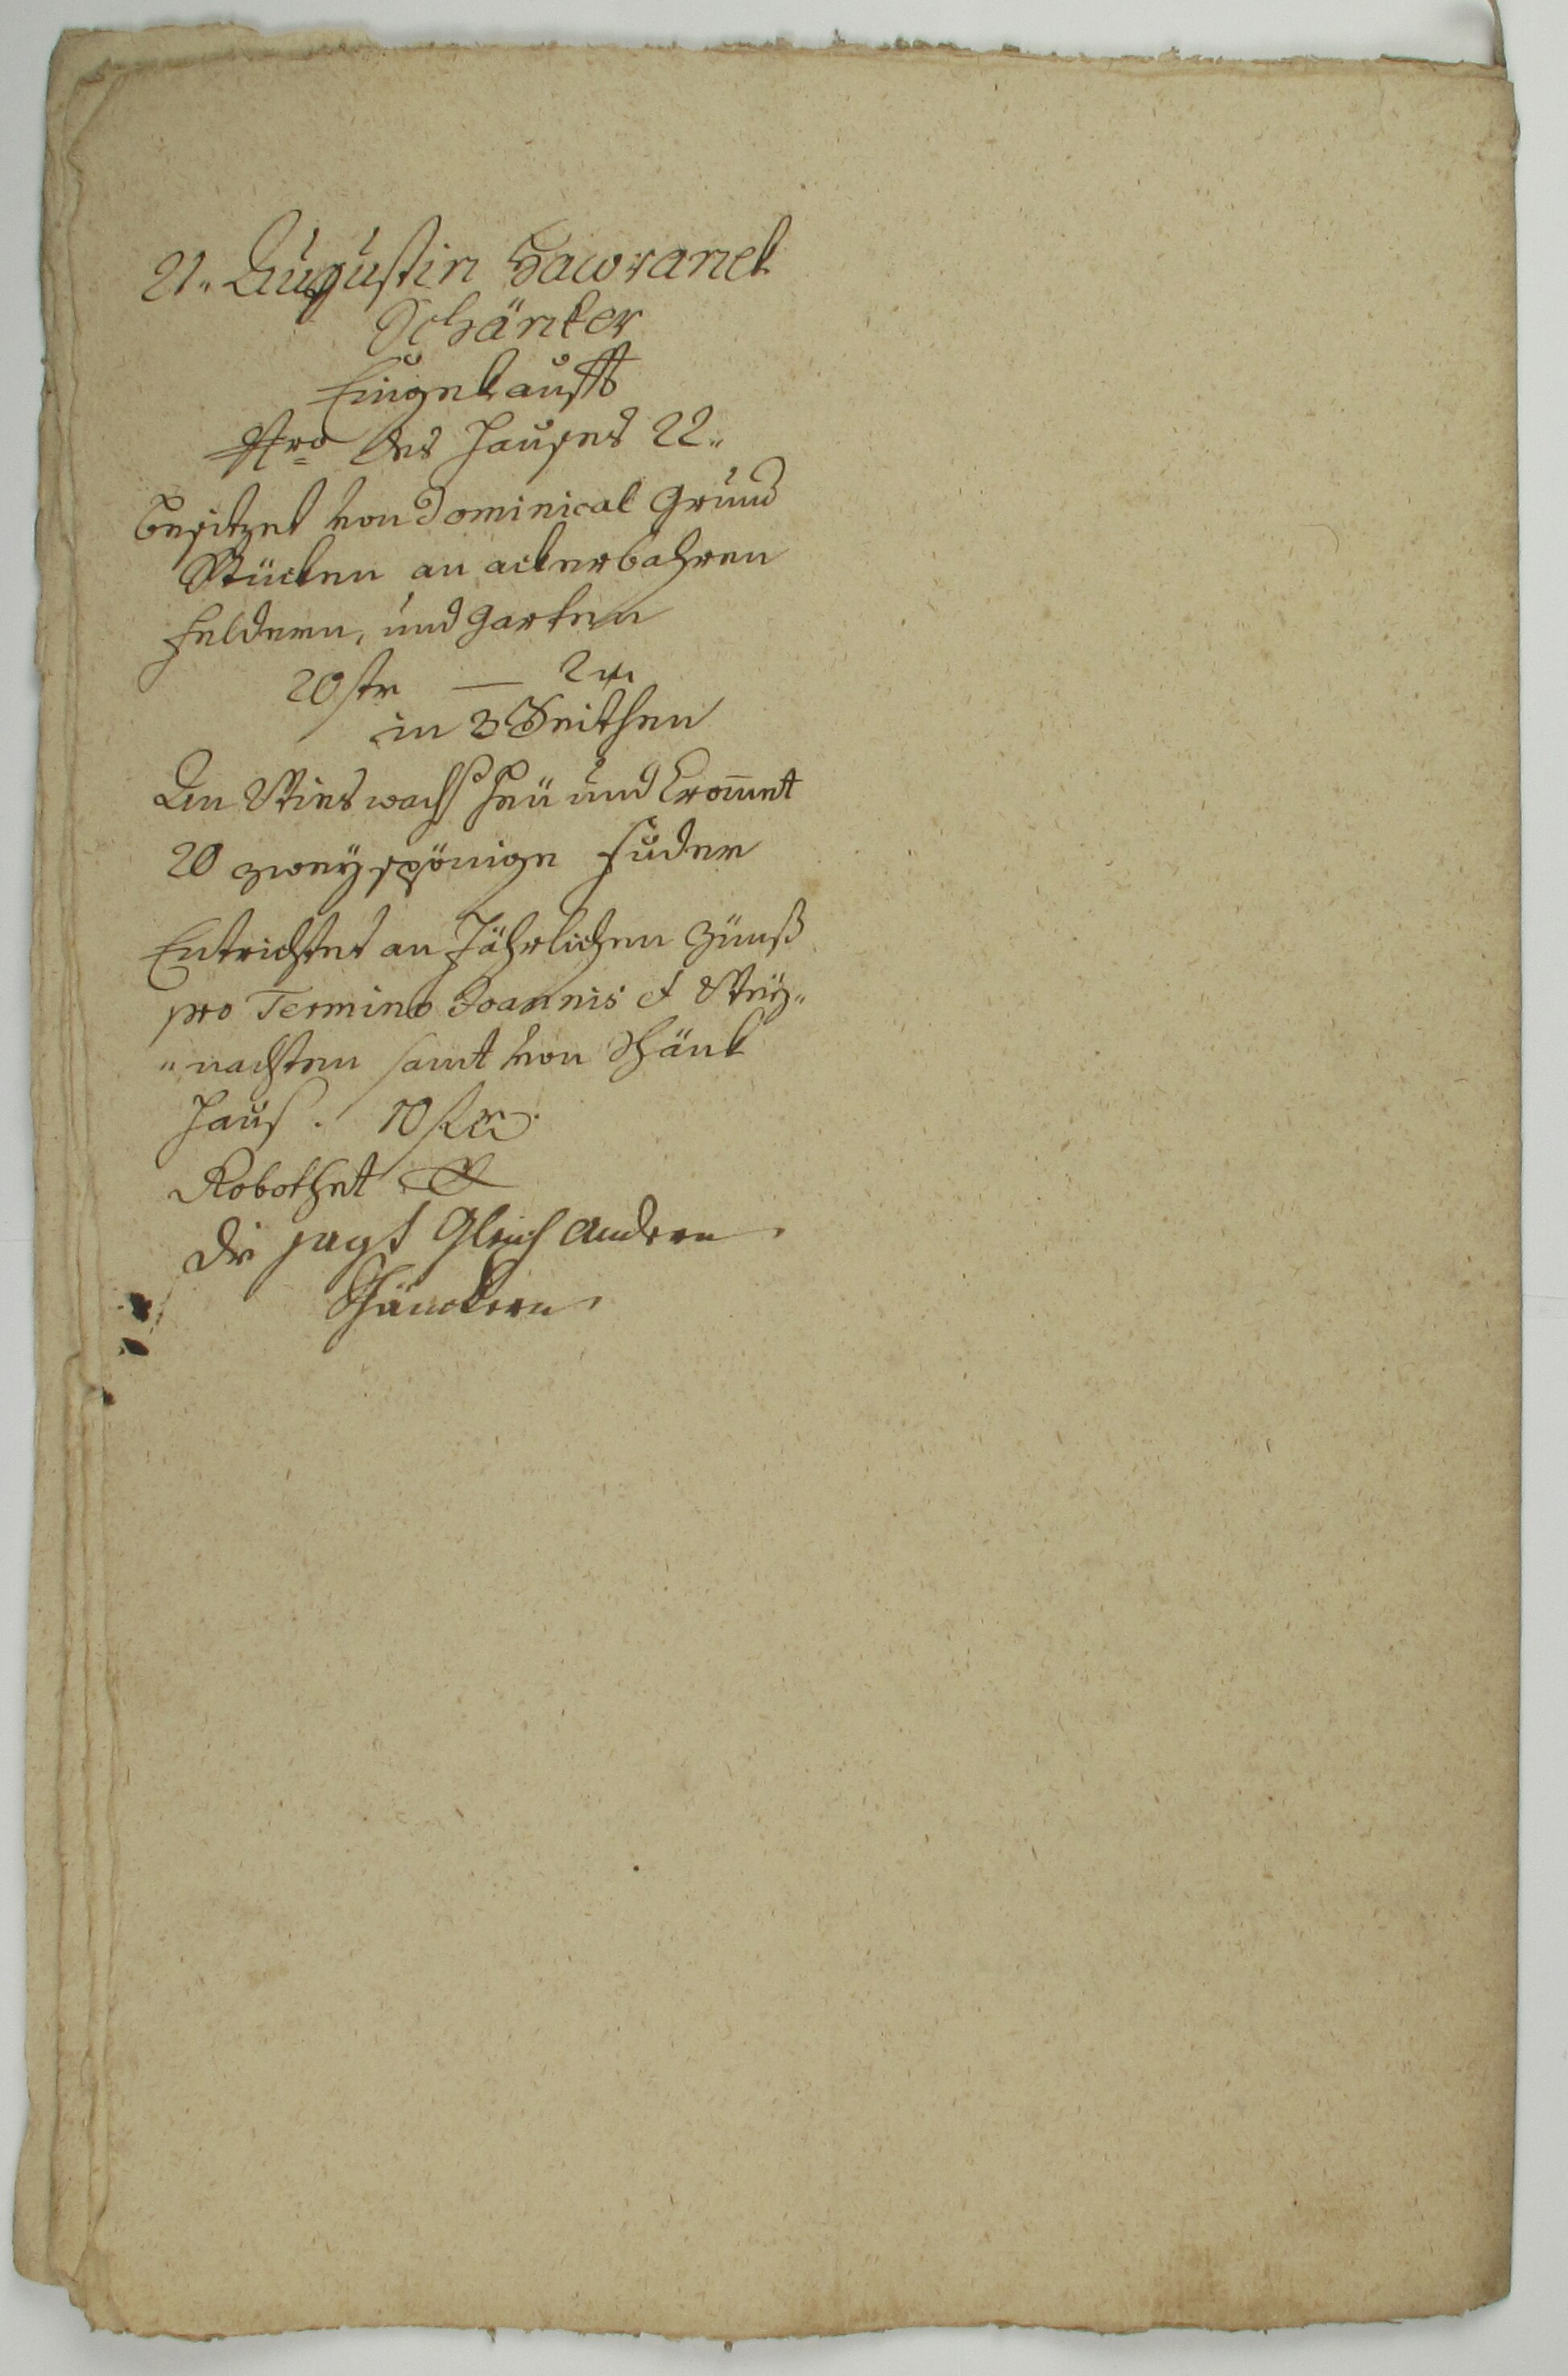 21. Augustin Hawranek
Schänker
Eingekaufft
Nro des Hauses 22.
besitzet von Dominical Grund
Stücken an ackerbahren
Feldern, und garten
20 str — 2
in 3 Seithen
An Wieswachs Heü und Crommet
20 zweyspönige Fuder
Entrichtet an Jährlichen Zünß
pro Termino Joannis et Wey„
„nachten samt von Schänk
Hauß. 10
Robothet
die jagt Gleich Andern
Schänckern.